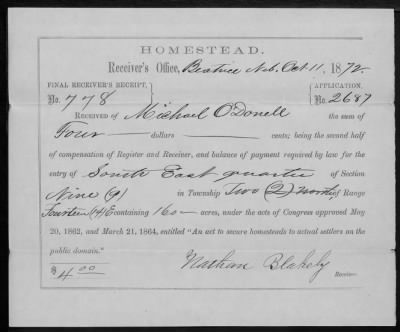 HOMESTEAD.
Receiver's Office, Beatrice Neb, Oct 11, 1872.
FINAL RECEIVER'S RECEIPT, APPLICATION,
No. 778 No. 2687
RECEIVED OF Michael O'Donell the sum of
Four dollars cents; being the second half
of compensation of Register and Receiver, and balance of payment required by law for the
entry of South East quarter of Section
Nine (9) in Township Two (2) North, of Range
Fourteen (14) E containing 160 acres, under the acts of Congress approved May
20, 1862, and March 21, 1864, entitled "An act to secure homesteads to actual settlers on the
public domain."
$ 4 00 Nathan Blakely
Receiver.